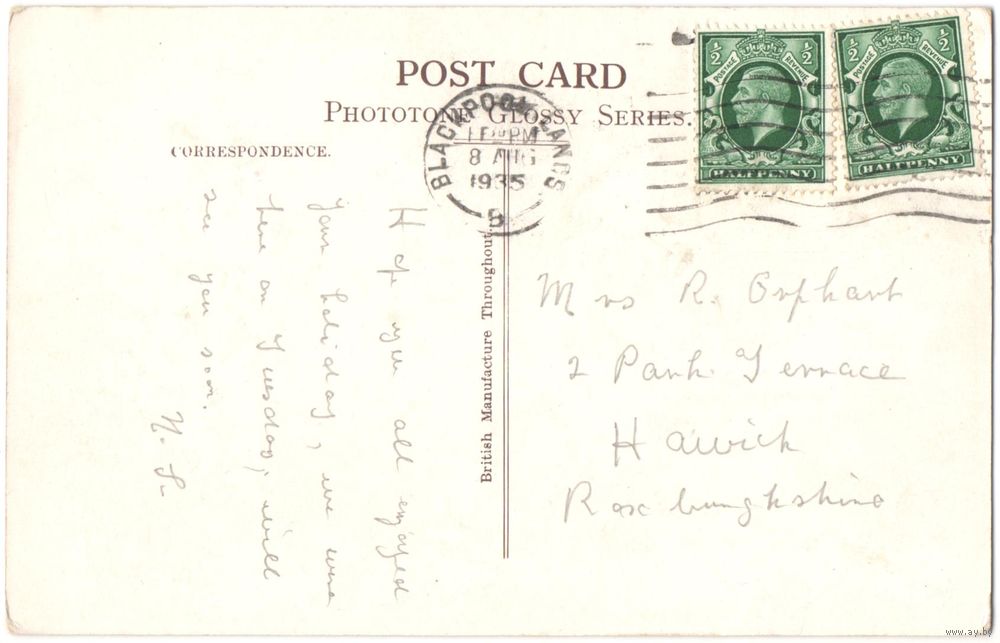 POST CARD
PHOTOTONE GLOSSY SERIES.
CORRESPONDENCE.
BLACKPOOL LANCS
PM
8 AUG
1935
B
½ ½
POSTAGE REVENUE
HALFPENNY
½ ½
POSTAGE REVENUE
HALFPENNY
British Manufacture Throughout.
Hope you all enjoyed
your holiday, we were
here on Tuesday, will
see you soon.
Mrs R. Orphant
2 Park Terrace
Hawick
Roxburghshire
www.ay.by